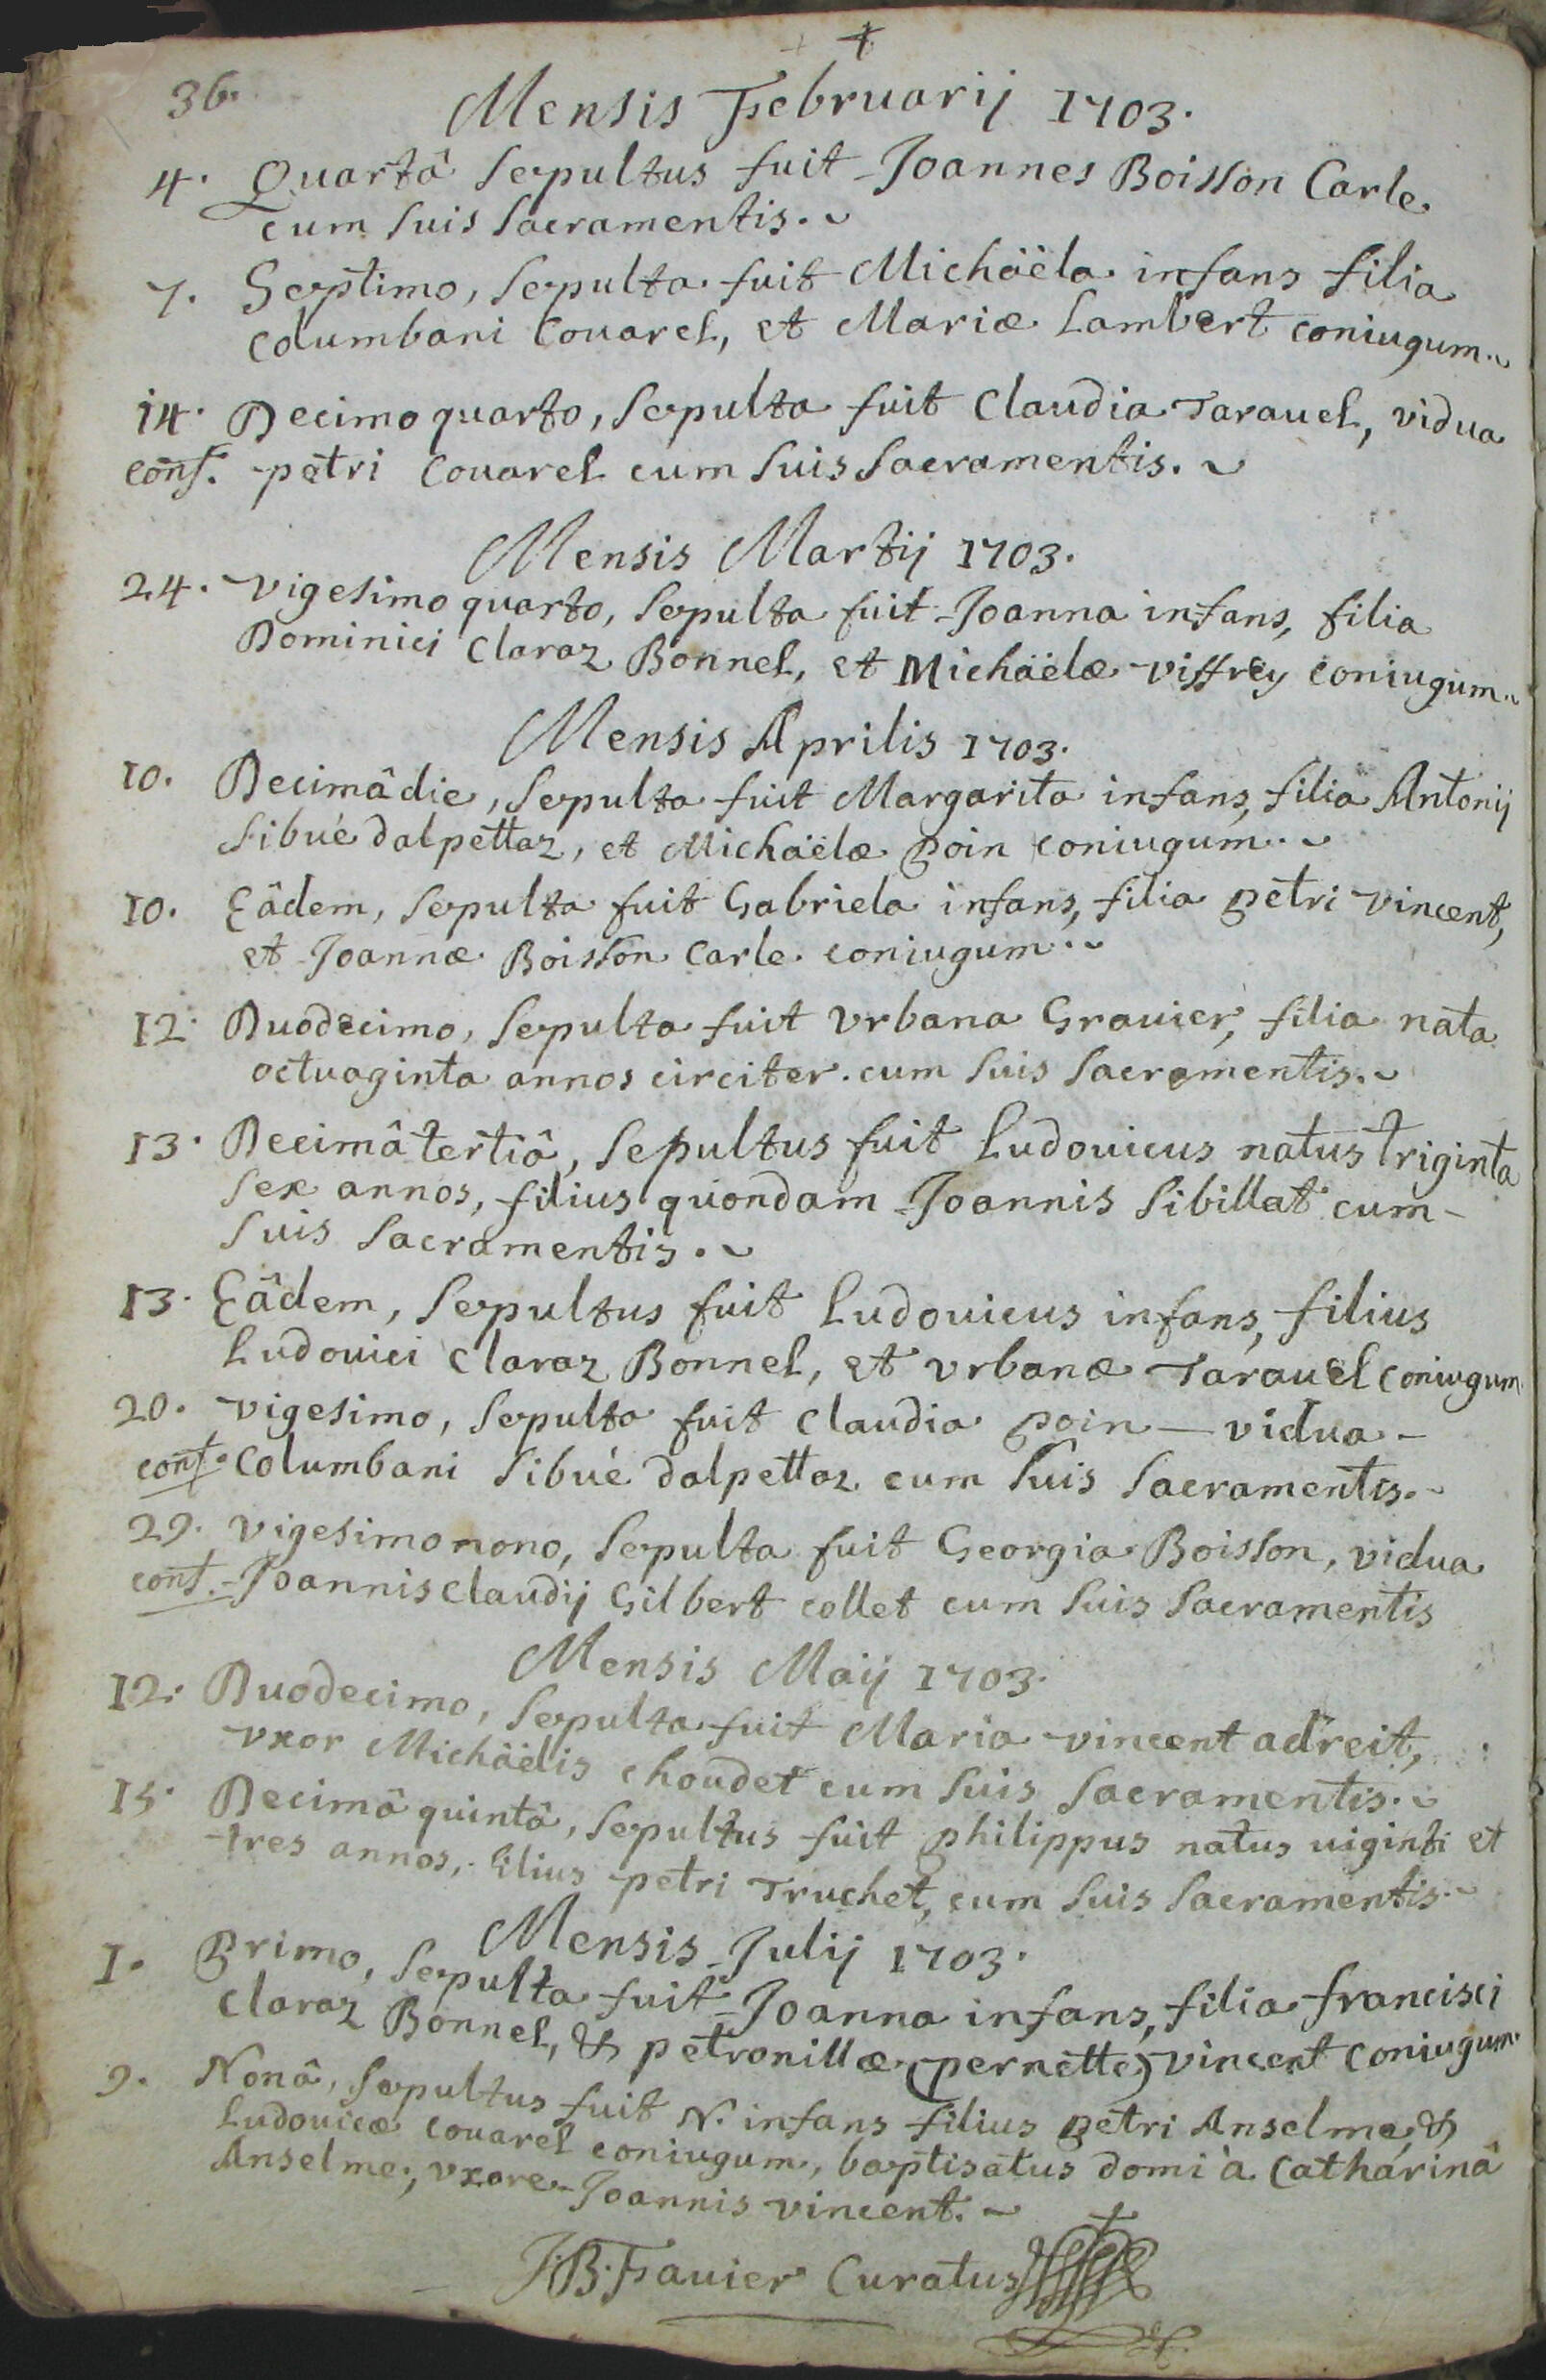 36.
Mensis Februarij 1703.
4. Quartâ sepultus fuit Joannes Boisson Carle
cum suis sacramentis.
7. Septimo, sepulta fuit Michäéla infans filia
Columbani Couarel, et Mariæ Lambert coniugum.
14. Decimo quarto, sepulta fuit Claudia Tarauel, vidua
conf. petri Couarel cum suis sacramentis.
Mensis Martij 1703.
24. vigesimo quarto, sepulta fuit Joanna infans, filia
Dominici Claraz Bonnel, et Michäélæ viffrey coniugum.
Mensis Aprilis 1703.
10. Decimâ die, sepulta fuit Margarita infans, filia Antonij
Sibué dalpettaz, et Michäélæ poin coniugum.
10. Eâdem, sepulta fuit Gabriela infans, filia petri vincent,
et Joannæ Boisson Carle coniugum.
12. Duodecimo, sepulta fuit vrbana Grauier, filia nata
octuaginta annos circiter. cum suis sacramentis.
13. Decimâ tertiâ, sepultus fuit Ludouicus natus triginta
sex annos, filius quondam Joannis Sibillat cum
suis sacramentis.
13. Eâdem, sepultus fuit Ludouicus infans, filius
Ludouici Claraz Bonnel, et vrbanæ Tarauel coniugum
20. vigesimo, sepulta fuit Claudia poin – vidua –
conf. Columbani Sibué dalpettaz cum suis sacramentis.
29. vigesimo nono, sepulta fuit Georgia Boisson, vidua
conf. Joannis Claudij Gilbert collet cum suis sacramentis
Mensis Maij 1703.
12. Duodecimo, sepulta fuit Maria vincent adreit,
vxor Michäélis choudet cum suis sacramentis.
15. Decimâ quintâ, sepultus fuit philippus natus uiginti et
tres annos, filius petri Truchet, cum suis sacramentis.
Mensis Julij 1703.
1. Primo, sepulta fuit Joanna infans, filia francisci
Claraz Bonnel, & petronillæ (pernette) vincent coniugum.
9. Nonâ, sepultus fuit N. infans filius petri Anselme, &
Ludouicæ couarel coniugum, baptisatus domi à Catharinâ
Anselme, vxore Joannis vincent.
J.B. Fauier Curatus